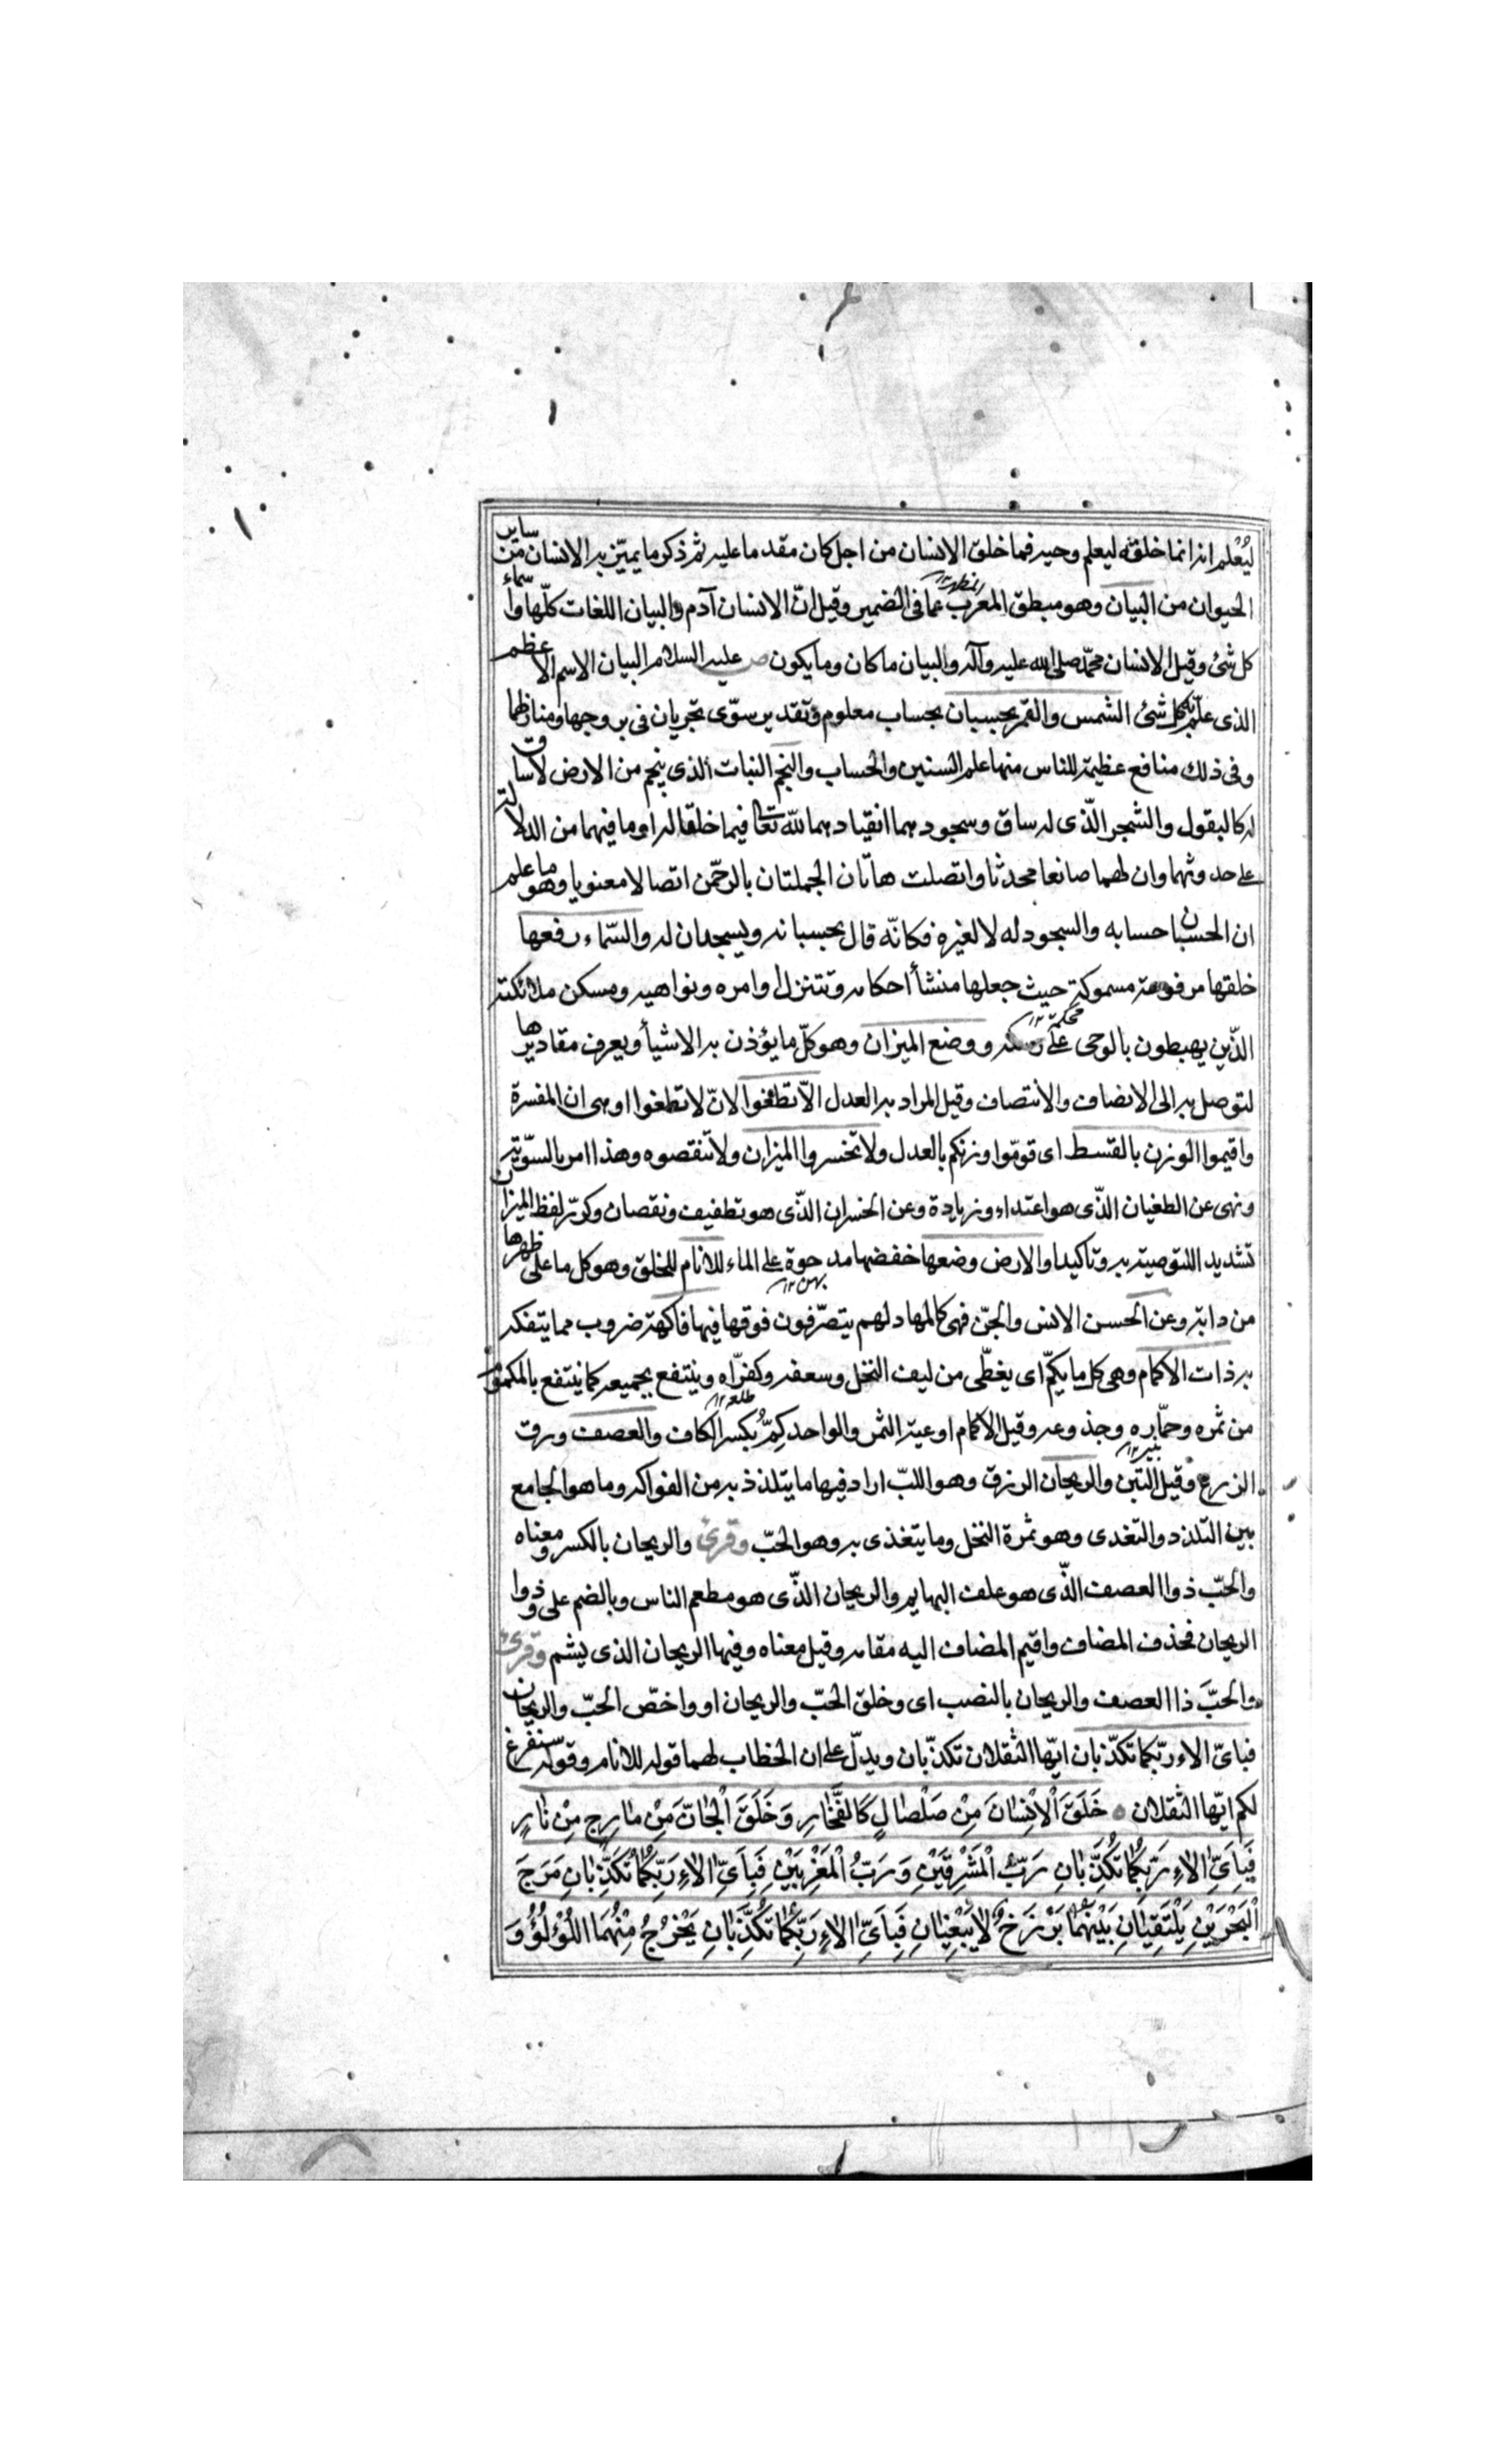 ليُعْلم انه انما خلقه ليعلم وحيه فما خلق الانسان من اجل كان مقدما عليه ثم ذكر ما يميّز به الانسان من ساير
الحيوان من البيان وهو منطق المعرب عما فى الضمير وقيل انّ الانسان آدم والبيان اللغات كلّها واسماء
كل شئ وقيل الانسان محمّد صلى الله عليه وآله والبيان ما كان وما يكون ص عليه السلام البيان الاسم الاعظم
الذى علّم به كل شئ الشمس والقمر بحسبان بحساب معلوم وتقدير سوّى تجريان فى بروجها ومنازلهما
وفى ذلك منافع عظيمة للناس منها علم السنين والحساب والنجم النبات الذى ينجم من الارض لا ساق
له كالبقول والشجر الّذى له ساق وسجودهما انقيادهما لله تعالى فيما خلقا له او ما فيهما من الدلالة
على حدوثهما وان لهما صانعا محدثا واتصلت هاتان الجملتان بالرحمن اتصالا معنويا وهو ما علم
ان الحسبان حسابه والسجود له لا لغيره فكانّه قال بحسبانه ويسجدان له والسّماء رفعها
خلقها مرفوعة مسموكة حيث جعلها منشأ احكامه وتتنزل اوامره ونواهيه ومسكن ملائكته
الّذين يهبطون بالوحى على ووضع الميزان وهو كلّ ما يؤذن به الاشيأ ويعرف مقاديرها
لتوصل به الى الانصاف والانتصاف وقيل المراد به العدل الّا تطغوا لانّ لا تطغوا او هى ان المفسرة
واقيموا الوزن بالقسط اى قوّموا وزنكم بالعدل ولا تخسروا الميزان ولا تنقصوه وهذا امر بالسّوية
ونهى عن الطغيان الّذى هو اعتداء وزيادة وعن الخسران الّذى هو تطفيف ونقصان وكرّر لفظ الميزان
تشديد اللتوصية به وتاكيدا والارض وضعها خفضها مدحوة على الماء للانام للخلق وهو كل ما على ظهرها
من دابة وعن الحسن الانس والجنّ فهى كالمهاد لهم يتصرّفون فوقها فيها فاكهة ضروب مما يتفكه
به ذات الاكمام وهى كل ما يكمّ اى يغطّى من ليف النخل وسعفه وكفرّاه وينتفع بجميعه كما ينتفع بالمكموم
من ثمره وجمّاره وجذوعه وقيل الاكمام اوعية الثمر والواحد كِمّ بكسر الكاف والعصف ورق
الزرع وقيل التبن والريحان الرزق وهو اللبّ اراد فيها ما يتلذذ به من الفواكه وما هو الجامع
بين التلذذ والتغدى وهو ثمرة النخل وما يتغذى به وهو الحبّ وقرئ والريحان بالكسر ومعناه
والحبّ ذوا العصف الّذى هو علف البهايم والريحان الّذى هو مطعم الناس وبالضم على وذوا
الريحان فحذف المضاف واقيم المضاف اليه مقامه وقيل معناه وفيها الريحان الذى يشم وقرئ
والحبَّ ذا العصف والريحان بالنصب اى وخلق الحبّ والريحان او واخصّ الحبّ والريحان
فباىّ الاء ربّكما تكذّبان ايّها الثقلان تكذّبان ويدلّ على ان الخطاب لهما قوله للانام وقوله سنفرغ
لكم ايّها الثقلان ۞ خَلَقَ الْاِنْسَانَ مِنْ صَلْصَالٍ كَالفَّخَارِ وَخَلَقَ الْجَانَّ مِنْ مَارِجٍ مِنْ نَارٍ
فَبِاَىِّ الاءِ رَبِّكُمَا تُكَذِّبَانِ رَبُّ الْمَشْرِقَيْنِ وَرَبُّ الْمَغْرِبَيْنِ فَبِاَىِّ الاءِ رَبِّكُمَا تُكَذِّبَانِ مَرَجَ
الْبَحْرَيْنِ يَلْتَقِيَانِ بَيْنَهُمَا بَرْزَخٌ لَا يَبْغِيَانِ فَبِاَىِّ الاءِ رَبِّكُمَا تُكَذِّبَانِ يَخْرُجُ مِنْهُمَا اللُؤْلُؤُ وَ